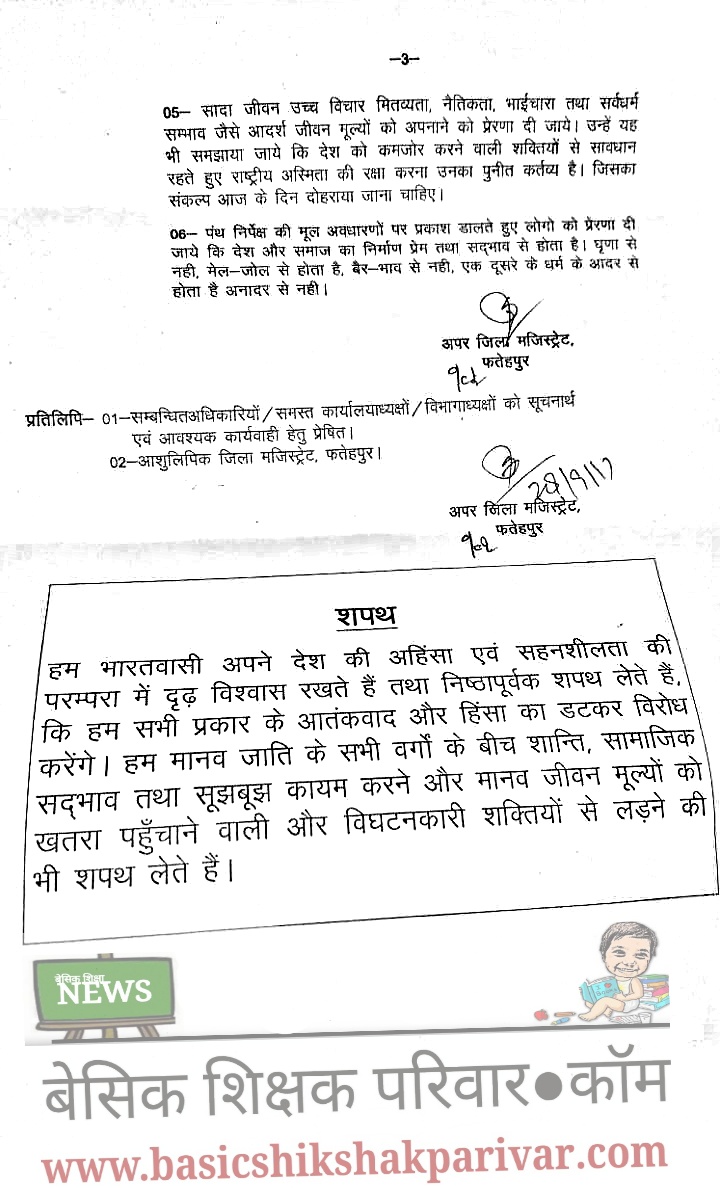 –3–
05– सादा जीवन उच्च विचार मितव्यता, नैतिकता, भाईचारा तथा सर्वधर्म
सम्भाव जैसे आदर्श जीवन मूल्यों को अपनाने को प्रेरणा दी जाये। उन्हें यह
भी समझाया जाये कि देश को कमजोर करने वाली शक्तियों से सावधान
रहते हुए राष्ट्रीय अस्मिता की रक्षा करना उनका पुनीत कर्तव्य है। जिसका
संकल्प आज के दिन दोहराया जाना चाहिए।
06– पंथ निर्पेक्ष की मूल अवधारणों पर प्रकाश डालते हुए लोगो को प्रेरणा दी
जाये कि देश और समाज का निर्माण प्रेम तथा सद्भाव से होता है। घृणा से
नही, मेल–जोल से होता है, बैर–भाव से नही, एक दूसरे के धर्म के आदर से
होता है अनादर से नही।
अपर जिला मजिस्ट्रेट,
फतेहपुर
प्रतिलिपि– 01–सम्बन्धितअधिकारियों/समस्त कार्यालयाध्यक्षों/विभागाध्यक्षों को सूचनार्थ
एवं आवश्यक कार्यवाही हेतु प्रेषित।
02–आशुलिपिक जिला मजिस्ट्रेट, फतेहपुर।
अपर जिला मजिस्ट्रेट,
फतेहपुर
शपथ
हम भारतवासी अपने देश की अहिंसा एवं सहनशीलता की
परम्परा में दृढ़ विश्वास रखते हैं तथा निष्ठापूर्वक शपथ लेते हैं,
कि हम सभी प्रकार के आतंकवाद और हिंसा का डटकर विरोध
करेंगे। हम मानव जाति के सभी वर्गो के बीच शान्ति, सामाजिक
सद्भाव तथा सूझबूझ कायम करने और मानव जीवन मूल्यों को
खतरा पहुँचाने वाली और विघटनकारी शक्तियों से लड़ने की
भी शपथ लेते हैं।
बेसिक शिक्षा
NEWS
बेसिक शिक्षक परिवार●कॉम
www.basicshikshakparivar.com